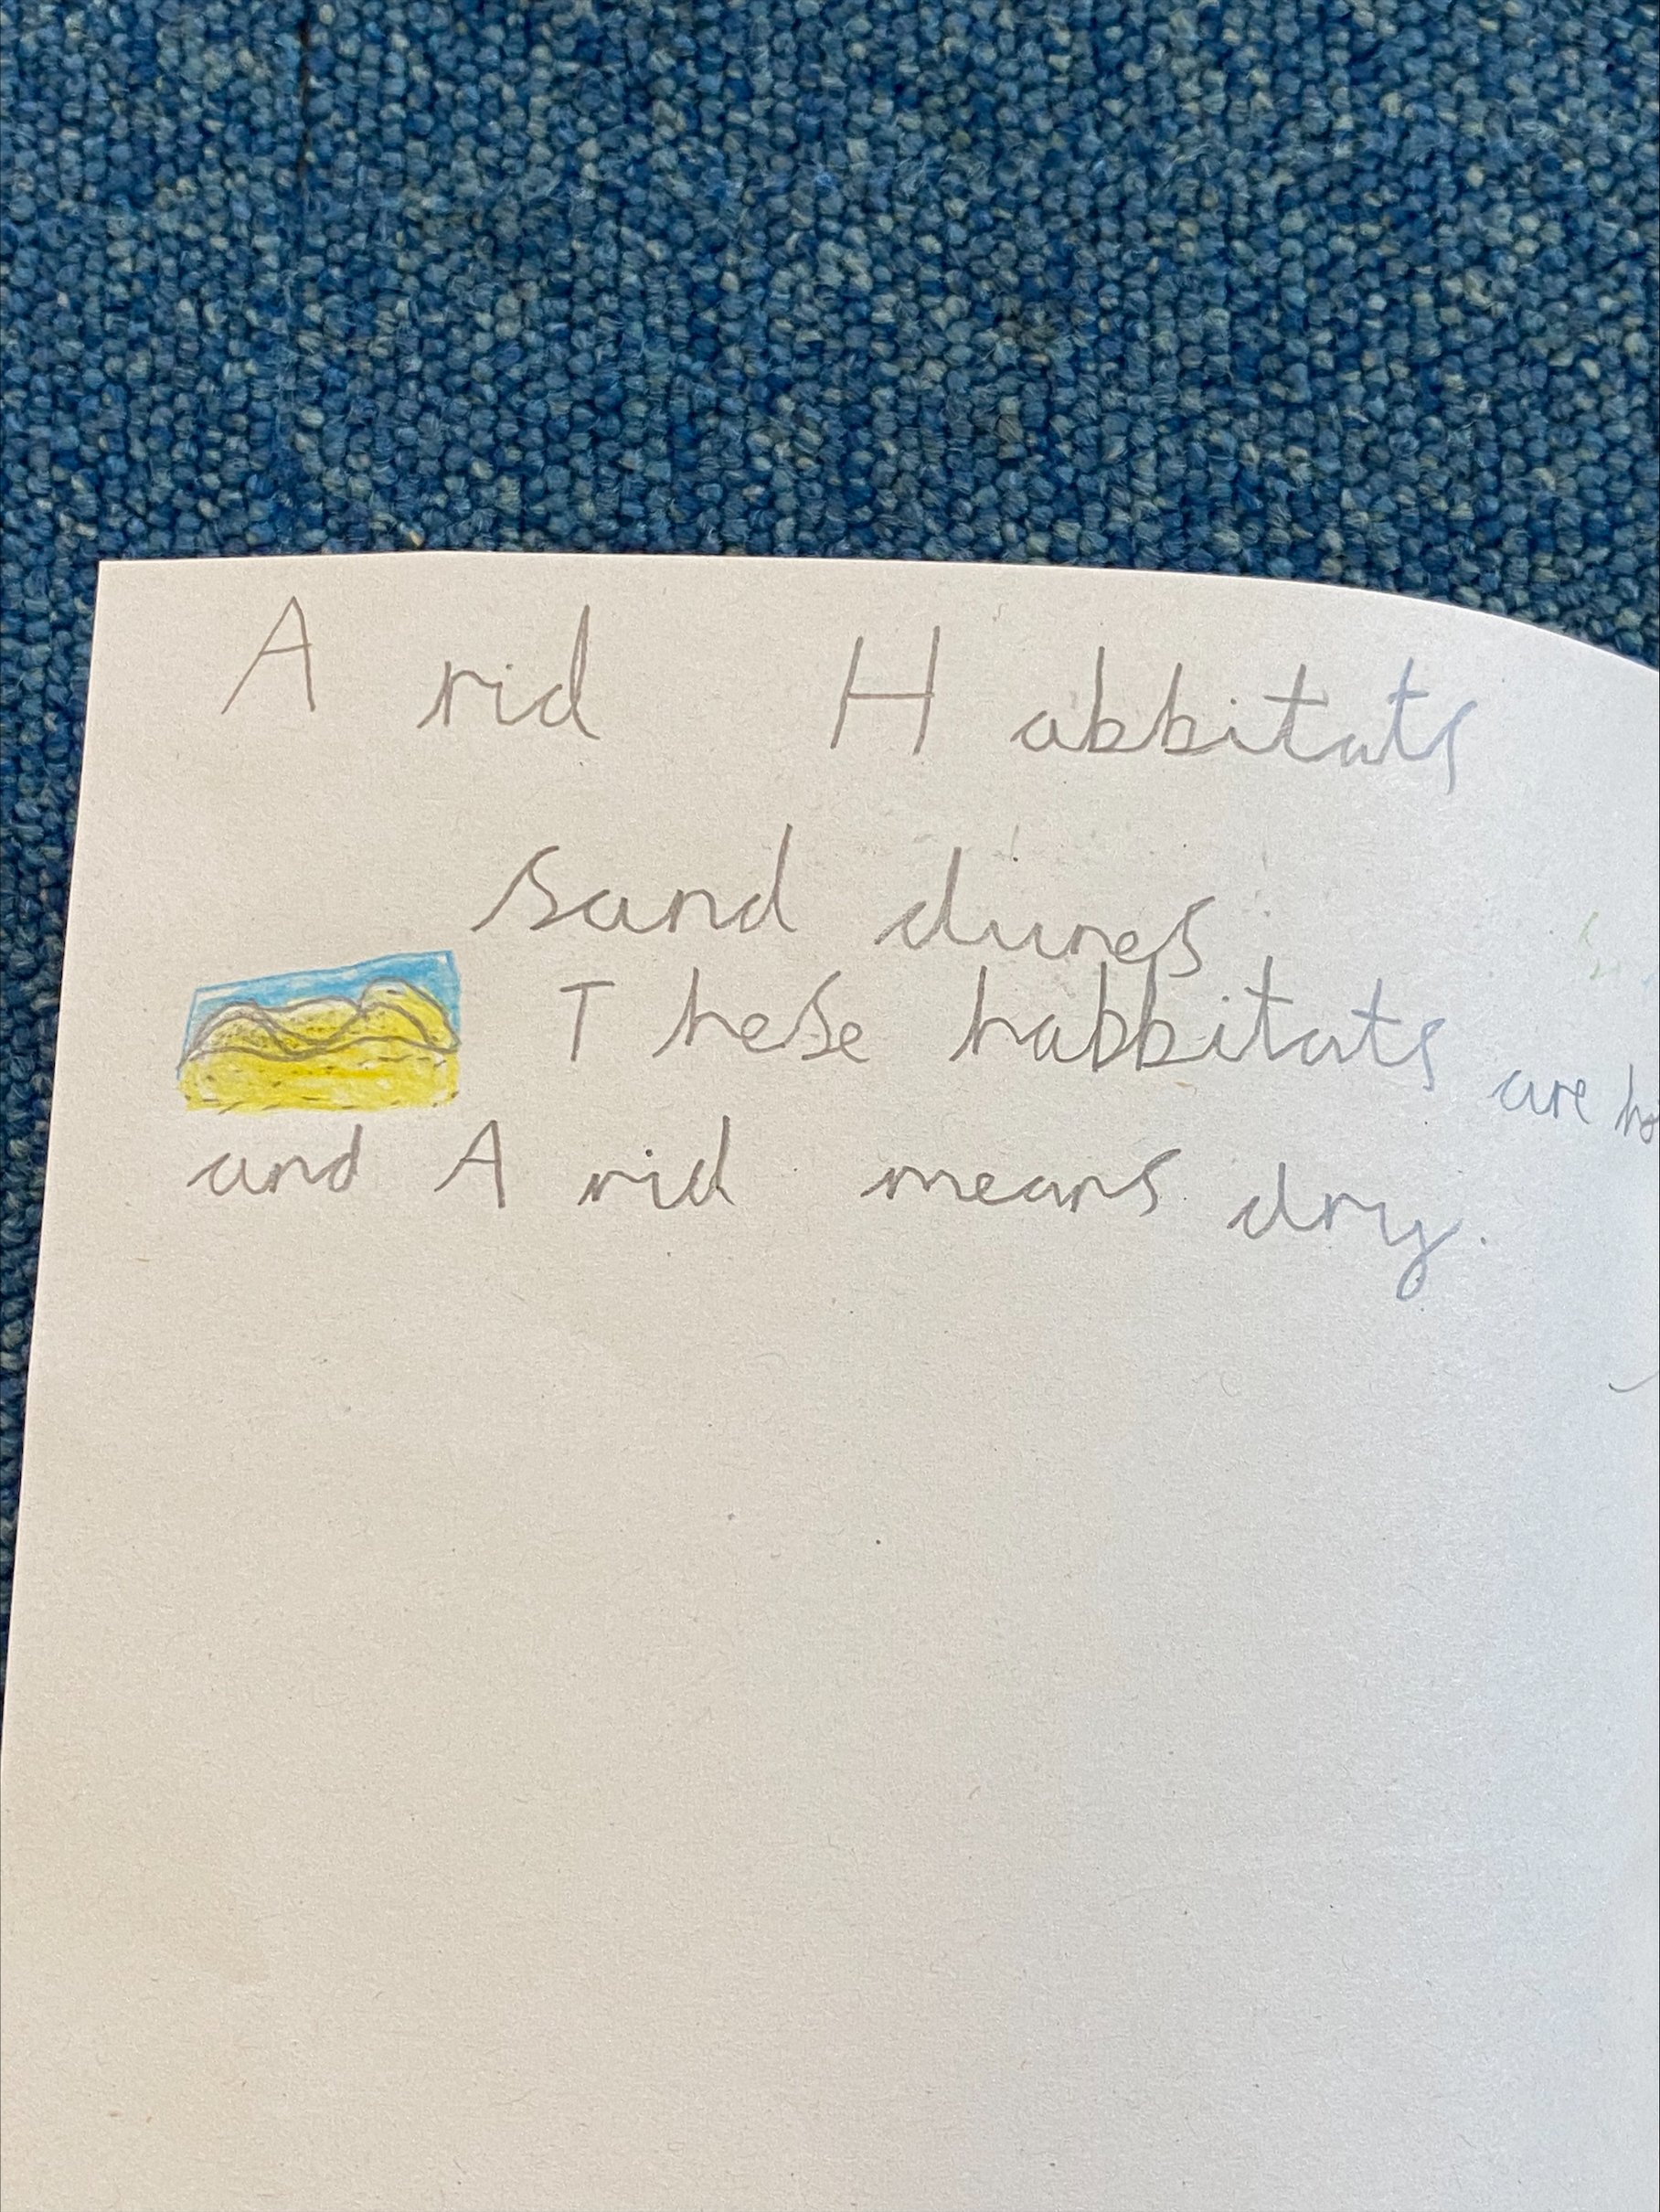 Arid Habbitats
Sand dunes
These habbitats are
and Arid means dry.